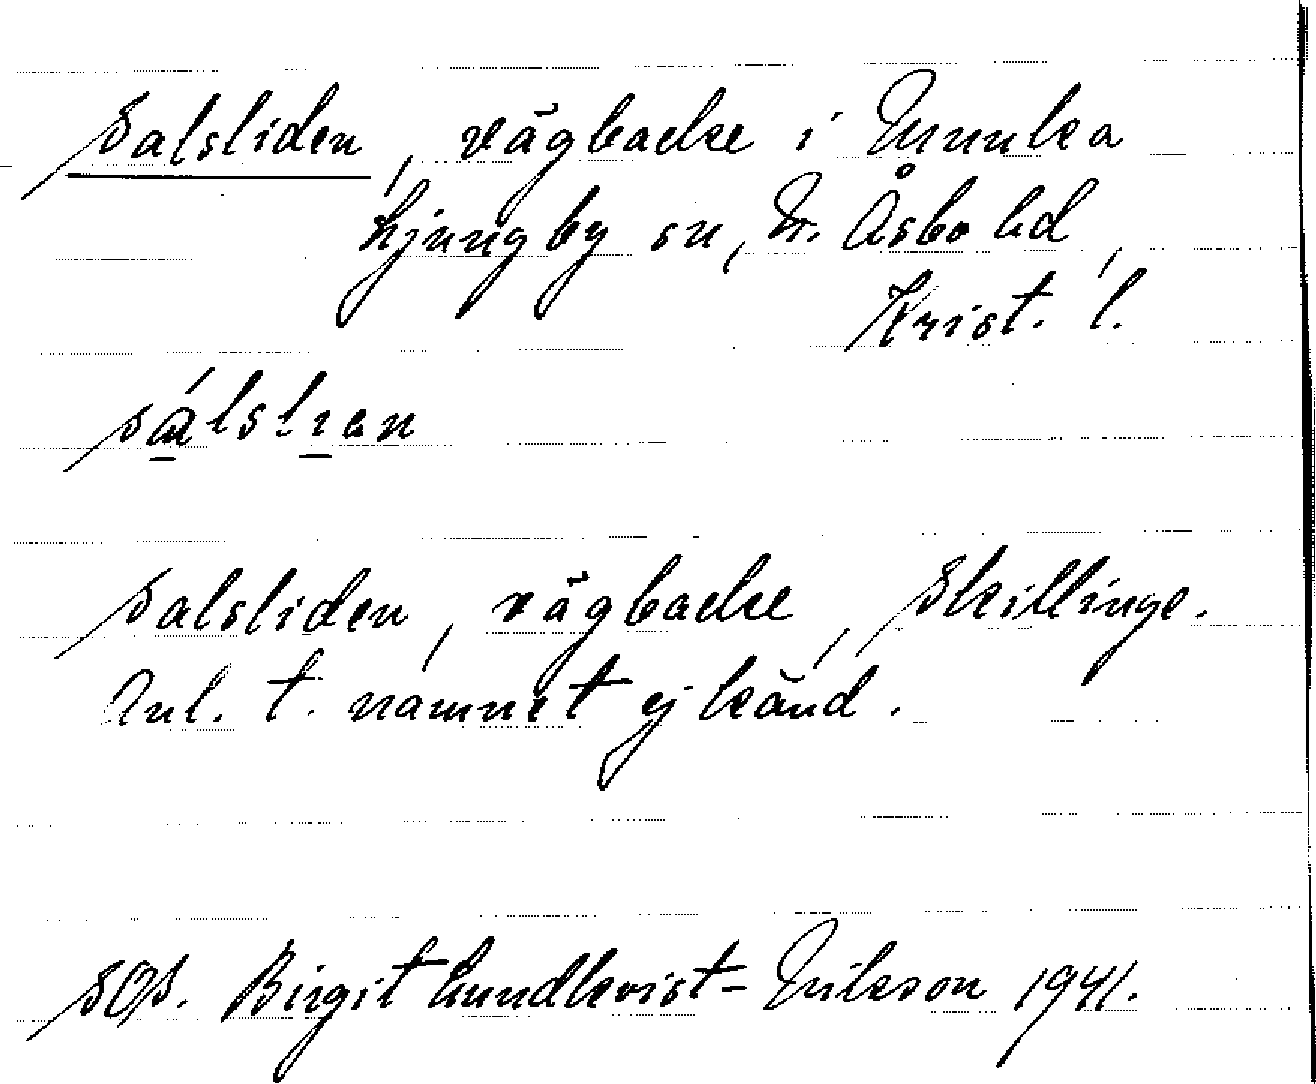 Salsliden, vägbacke i Munka
Ljungby sn, N. Åsbo hd,
Krist. l.
Salsliden, vägbacke, Skillinge.
Anl. t. namnet ej känd.
SOS. Birgit Lundkvist-Nilsson 1941.